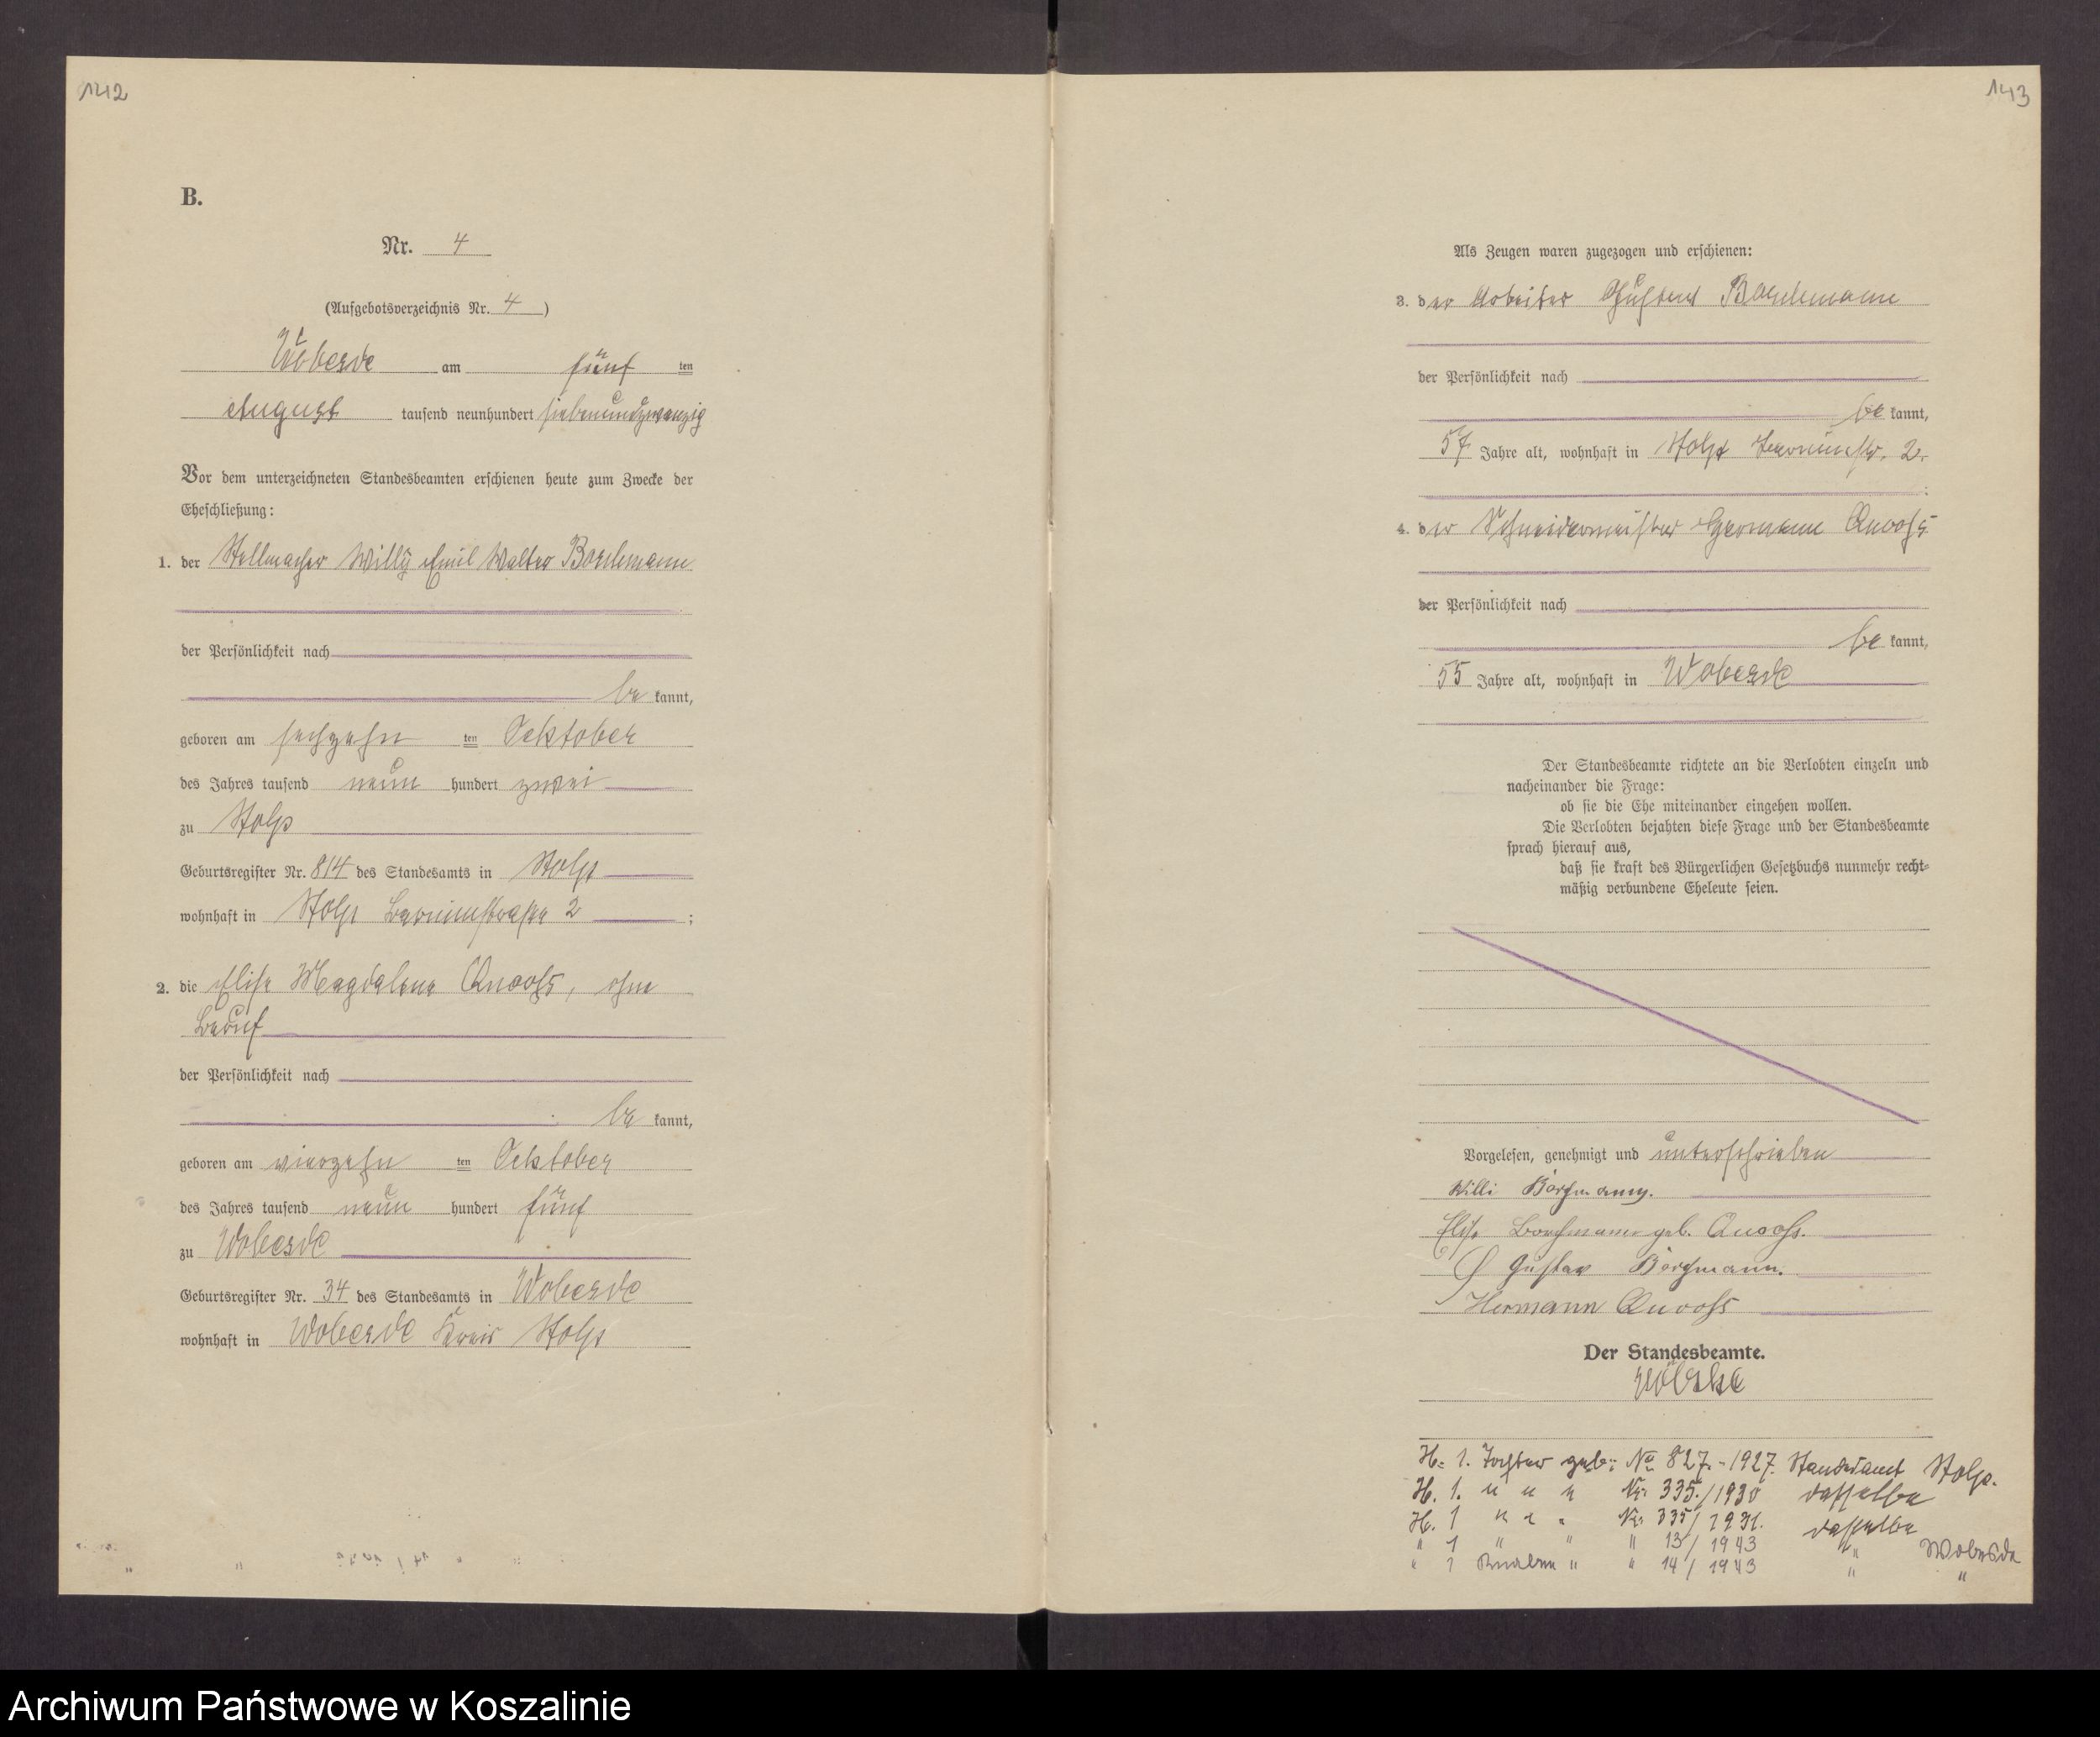 142
B.
Nr. 4
(Aufgebotsverzeichnis Nr. 4)
Wobesde am fünf ten
August tausend neunhundert siebenundzwanzig
Vor dem unterzeichneten Standesbeamten erschienen heute zum Zwecke der
Eheschließung:
1. der Stellmacher Willy Emil Walter Borchmann
der Persönlichkeit nach
be kannt,
geboren am sechzehn ten Oktober
des Jahres tausend neun hundert zwei
zu Stolp
Geburtsregister Nr. 814 des Standesamts in Stolp
wohnhaft in Stolp Barnimstraße 2 ;
2. die Elise Magdalena Quooß, ohne
Beruf
der Persönlichkeit nach
be kannt,
geboren am vierzehn ten Oktober
des Jahres tausend neun hundert fünf
zu Wobesde
Geburtsregister Nr. 34 des Standesamts in Wobesde
wohnhaft in Wobesde Kreis Stolp
143
Als Zeugen waren zugezogen und erschienen:
3. der Arbeiter Gustav Borchmann
der Persönlichkeit nach
be kannt,
57 Jahre alt, wohnhaft in Stolp Barnimstr. 2.
;
4. der Schneidermeister Hermann Quooß
der Persönlichkeit nach
be kannt,
55 Jahre alt, wohnhaft in Wobesde
Der Standesbeamte richtete an die Verlobten einzeln und
nacheinander die Frage:
ob sie die Ehe miteinander eingehen wollen.
Die Verlobten bejahten diese Frage und der Standesbeamte
sprach hierauf aus,
daß sie kraft des Bürgerlichen Gesetzbuchs nunmehr recht-
mäßig verbundene Eheleute seien.
Vorgelesen, genehmigt und unterschrieben
Willi Borchmann.
Elise Borchmann geb. Quooß.
Gustav Borchmann.
Hermann Quooß
Der Standesbeamte.
H. 1. Tochter geb. No 827.-1927. Standesamt Stolp.
H. 1. " " " Nr. 335./1930 dasselbe
H. 1 " " " Nr. 335/1931. dasselbe
" 1 " " " 13/1943 " Wobesde
" 1 Knaben " " 14/1943 " "
Archiwum Państwowe w Koszalinie